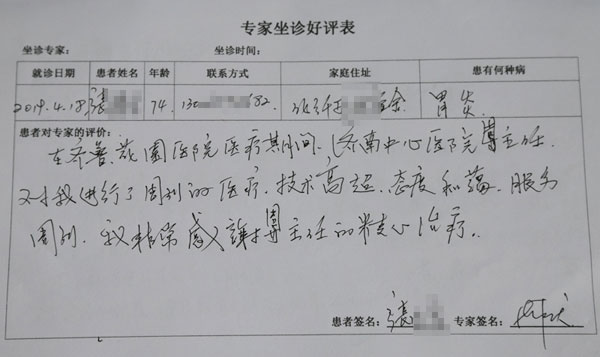 专家坐诊好评表
坐诊专家： 坐诊时间：
就诊日期 患者姓名 年龄 联系方式 家庭住址 患有何种病
2019.4.18 張 74. 130 682. 胃炎
患者对专家的评价：
在齐鲁花園医院医疗其间，济南中心医院 主任.
对我进行了周到的医疗.技术高超.态度和蔼.服务
周到.我非常感谢 主任的精心治疗..
患者签名：張 专家签名：